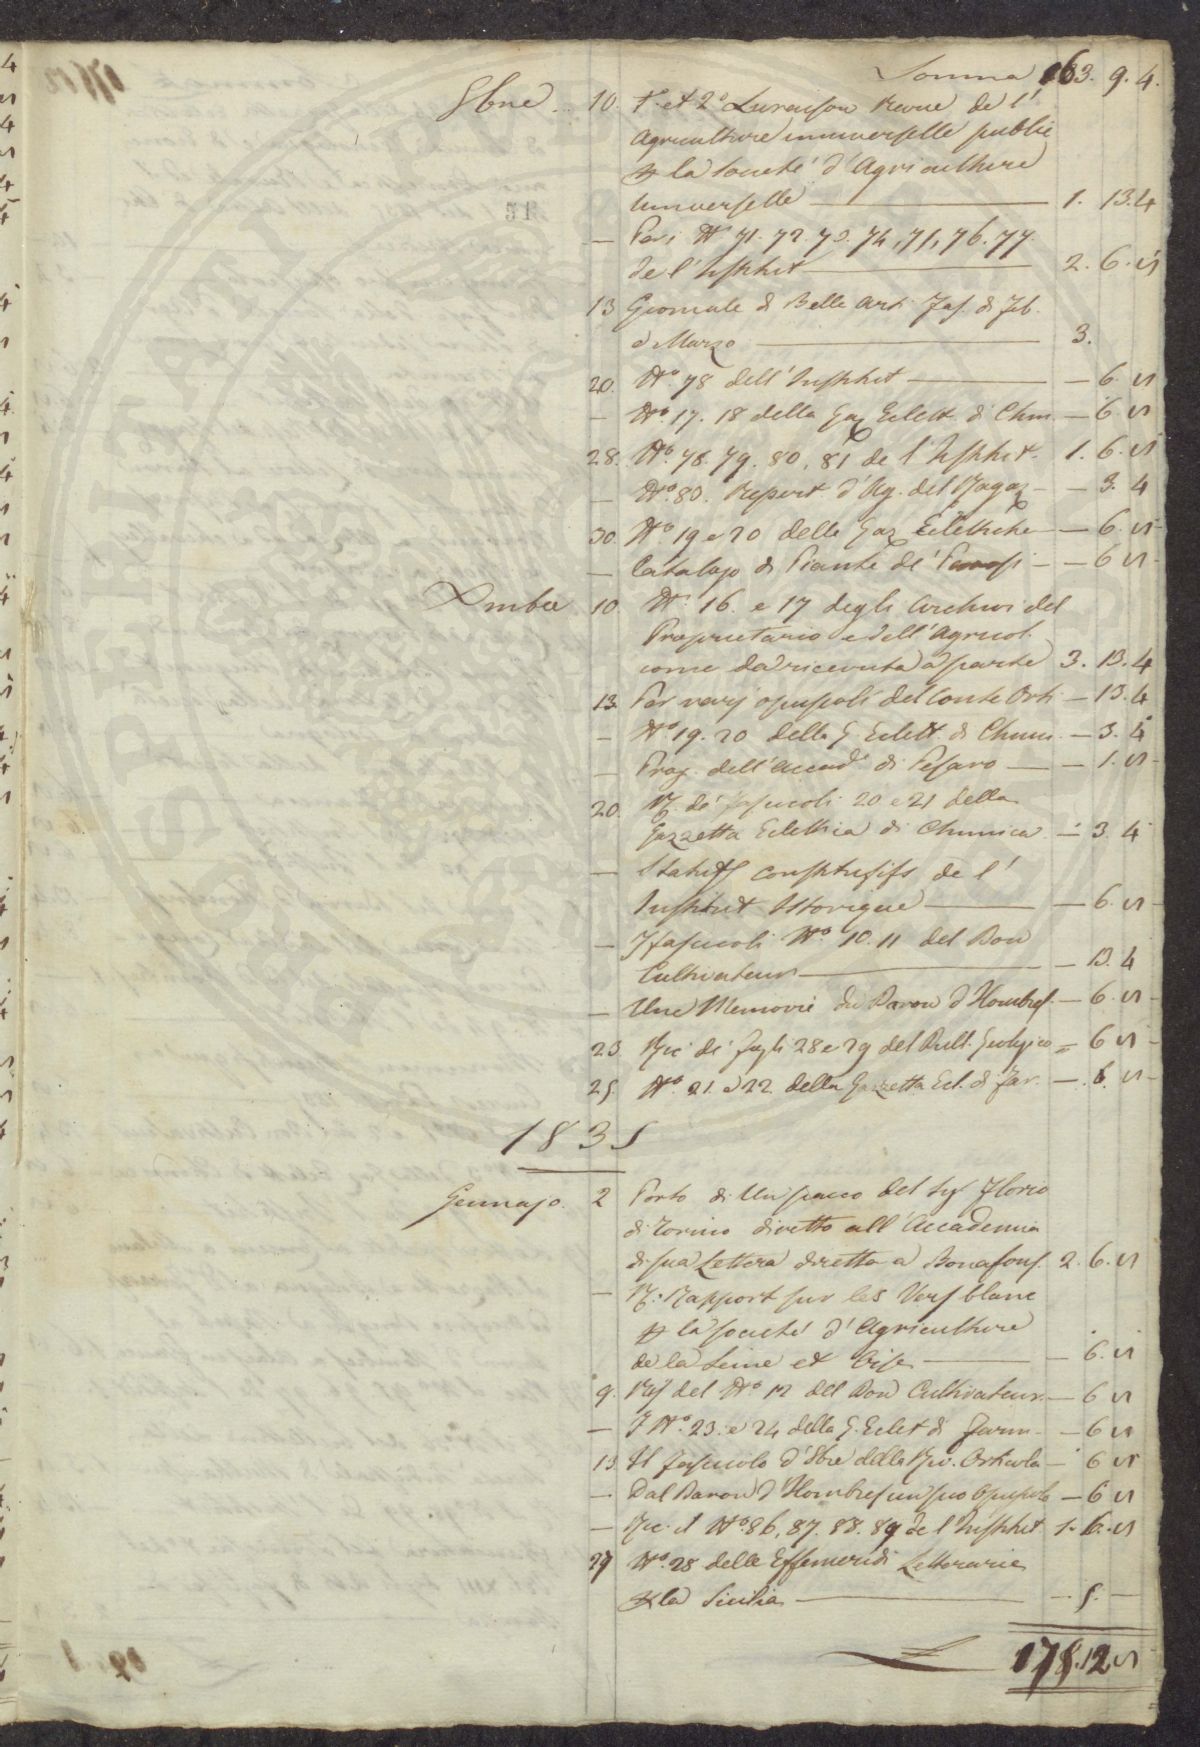 Somma 163. 9. 4.
9bre .. 10. 1º et 2º Livraison Revue de l'
Agriculture universelle publié
la Societé d'Agriculture
universelle — 1. 13.4
— Nº 71. 72. 73. 74, 75, 76. 77.
de l'Institut — 2. 6.
13 Giornale di Belle Arti Fas. di Feb.
e Marzo — 3.
20. Nº 78 dell'Institut — 6.
— Nº 17. 18 della Gaz Eclett. di Chim. — 6.
28. Nº 78. 79. 80, 81 de l'Institut. 1. 6.
— Nº 83. Repert. d'Ag. del Ragaz — 3. 4
30. Nº 19 e 20 della Gaz Eclettiche — 6.
— Catalogo di Piante de' — 6
Xmbre 10. Nº 16. e 17 degli Archivi del
Proprietario e dell'Agricol.
come da ricevuta a parte 3. 13. 4
13. Per varj opuscoli del Conte — 13.4
— Nº 19. 20 della G. Eclett. di Chim. — 3. 4
— Prog. dell'Accad. di Pesaro — 1.
20. R. de' fascicoli 20 e 21 della
Gazzetta Eclettica di Chimica — 3. 4
— Statuts constitutifs de l'
Institut Istorique — 6.
— I fascicoli Nº 10. 11 del Bon
Cultivateur — 13. 4
— Une Memoire du Baron d'Hombres. — 6.
23. Ric. di fogli 28 e 29 del Bull. Geologico = 6
25. Nº 21. e 22. della Gazzetta Ecl. di Far. — 6.
1835
Gennajo. 2 Porto di Un pacco del Sig. Florio
di Torino diretto all'Accademia
di sua Lettera diretta a Bonafous. 2. 6.
— R. Rapport sur les Vers blanc
la société d'Agriculture
de la Seine et Oise — 6.
9. del Nº 12 del Bon Cultivateur. — 6
— I Nº 23. e 24 della G. Eclet di Farm. — 6
13. Il fascicolo d'8bre della Riv. — 6
— Dal Baron d'Hombres un suo Opuscolo — 6
— Ric. il Nº 86, 87. 88. 89 de l'Institut 1. 6.
27 Nº 28 delle Effemeridi Letterarie
la Sicilia — 5. —
178.12